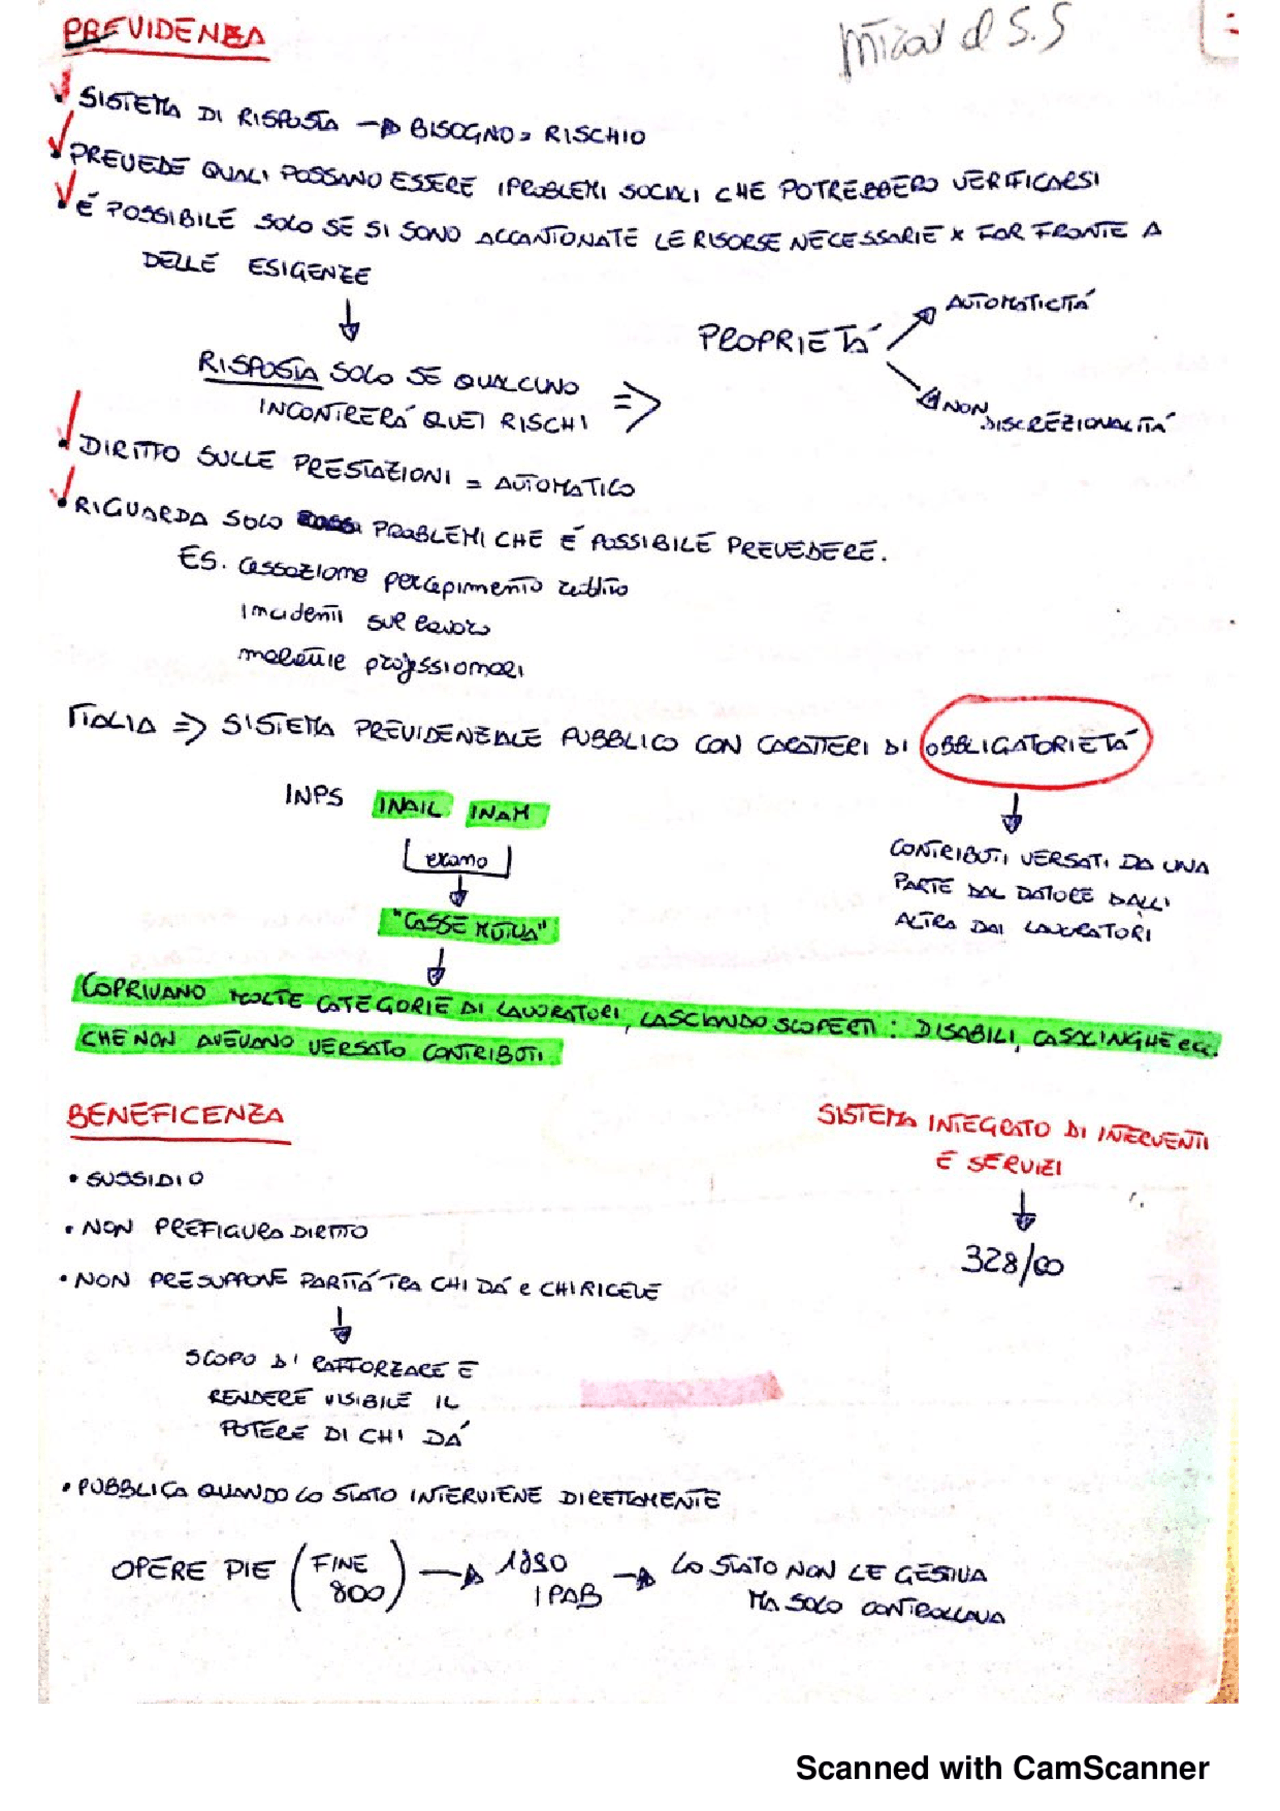 PREVIDENZA
d S.S
• SISTEMA DI RISPOSTA → BISOGNO = RISCHIO
• PREVEDE QUALI POSSANO ESSERE I PROBLEMI SOCIALI CHE POTREBBERO VERIFICARSI
• É POSSIBILE SOLO SE SI SONO ACCANTONATE LE RISORSE NECESSARIE X FOR FRONTE A
DELLE ESIGENZE
↓
RISPOSTA SOLO SE QUALCUNO
INCONTRERÁ QUEI RISCHI
=>
PROPRIETÁ
AUTOMATICITÁ
NON DISCREZIONALITÁ
• DIRITTO SULLE PRESTAZIONI = AUTOMATICO
• RIGUARDA SOLO PROBLEMI CHE É POSSIBILE PREVEDERE.
ES. cessazione percepimento reddito
incidenti sul lavoro
malattie professionali
ITALIA => SISTEMA PREVIDENZIALE PUBBLICO CON CARATTERI DI OBBLIGATORIETÁ
INPS INAIL INAM
erano
↓
"CASSE MUTUA"
↓
CONTRIBUTI VERSATI DA UNA
PARTE DAL DATORE DALL'
ALTRA DAI LAVORATORI
COPRIVANO MOLTE CATEGORIE DI LAVORATORI, LASCIANDO SCOPERTI: DISABILI, CASALINGHE ecc.
CHE NON AVEVANO VERSATO CONTRIBUTI
BENEFICENZA
• SUSSIDIO
• NON PREFIGURA DIRITTO
• NON PRESUPPONE PARITÁ TRA CHI DÁ e CHI RICEVE
↓
SCOPO DI RAFFORZARE E
RENDERE VISIBILE IL
POTERE DI CHI DÁ
SISTEMA INTEGRATO DI INTERVENTI
E SERVIZI
↓
328/00
• PUBBLICA QUANDO LO STATO INTERVIENE DIRETTAMENTE
OPERE PIE (FINE 800) → 1890 IPAB → LO STATO NON LE GESTIVA
MA SOLO CONTROLLAVA
Scanned with CamScanner